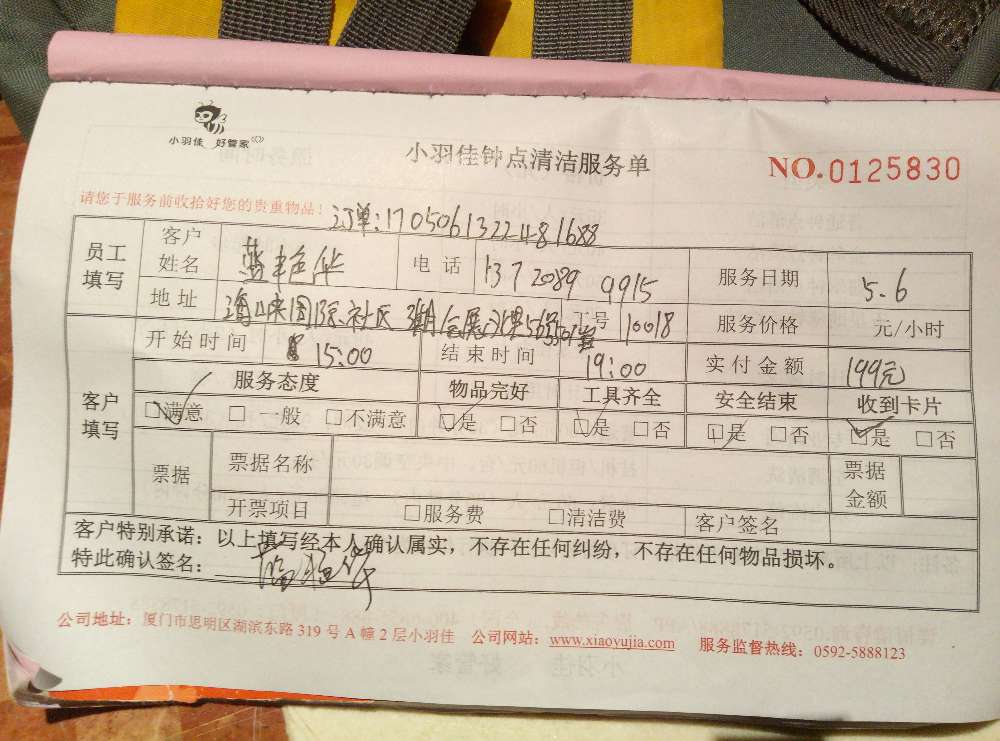 小羽佳 好管家
小羽佳钟点清洁服务单
NO.0125830
请您于服务前收拾好您的贵重物品!
订单:1705061322481688
员工填写 客户姓名 蓝艳华 电话 13720899915 服务日期 5.6
地址 海峡国际社区 工号 10018 服务价格 元/小时
开始时间 15:00 结束时间 19:00 实付金额 199元
客户填写 服务态度 物品完好 工具齐全 安全结束 收到卡片
☑满意 □一般 □不满意 ☑是 □否 ☑是 □否 ☑是 □否 ☑是 □否
票据 票据名称 票据金额
开票项目 □服务费 □清洁费 客户签名
客户特别承诺:以上填写经本人确认属实,不存在任何纠纷,不存在任何物品损坏。
特此确认签名:
公司地址:厦门市思明区湖滨东路319号A幢2层小羽佳 公司网站:www.xiaoyujia.com 服务监督热线:0592-5888123